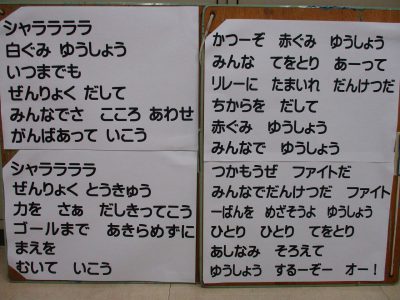 シャララララ
白ぐみ ゆうしょう
いつまでも
ぜんりょく だして
みんなでさ こころ あわせ
がんばあって いこう
シャララララ
ぜんりょく とうきゅう
力を さぁ だしきってこう
ゴールまで あきらめずに
まえを
むいて いこう
かつーぞ 赤ぐみ ゆうしょう
みんな てをとり あーって
リレーに たまいれ だんけつだ
ちからを だして
赤ぐみ ゆうしょう
みんなで ゆうしょう
つかもうぜ ファイトだ
みんなでだんけつだ ファイト
一ばんを めざそうよ ゆうしょう
ひとり ひとり てをとり
あしなみ そろえて
ゆうしょう するーぞー オー！